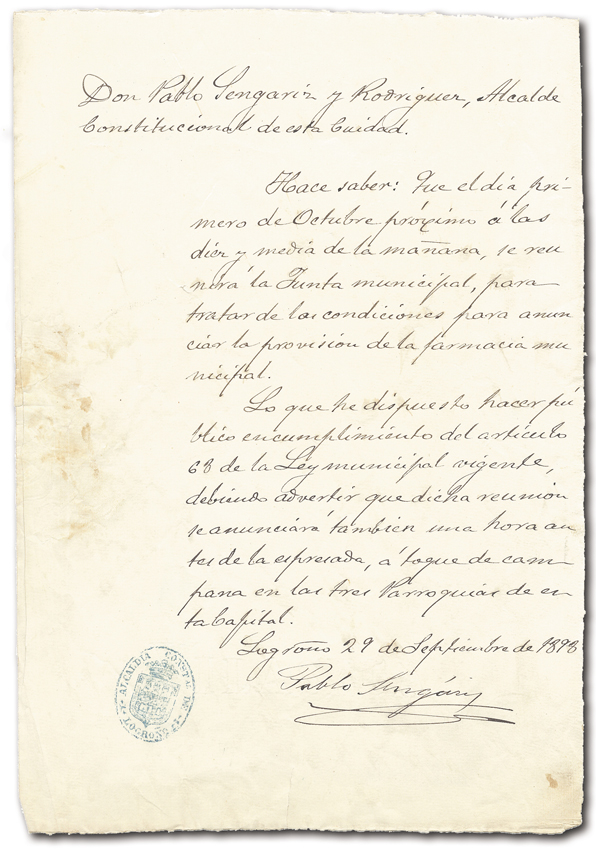 Don Pablo Sengariz y Rodriguez, Alcalde
Constitucional de esta Cuidad.
Hace saber: Que el dia pri-
mero de Octubre próximo á las
diez y media de la mañana, se reu
nirá la Junta municipal, para
tratar de las condiciones para anun
ciar la provisión de la farmacia mu
nicipal.
Lo que he dispuesto hacer pú
blico en cumplimiento del artículo
68 de la Ley municipal vigente,
debiendo advertir que dicha reunión
se anunciará tambien una hora an
tes de la espresada, á toque de cam
pana en las tres Parroquias de es
ta Capital.
Logroño 29 de Septiembre de 1898
Pablo Sengáriz
ALCALDIA CONSTL. DE LOGROÑO